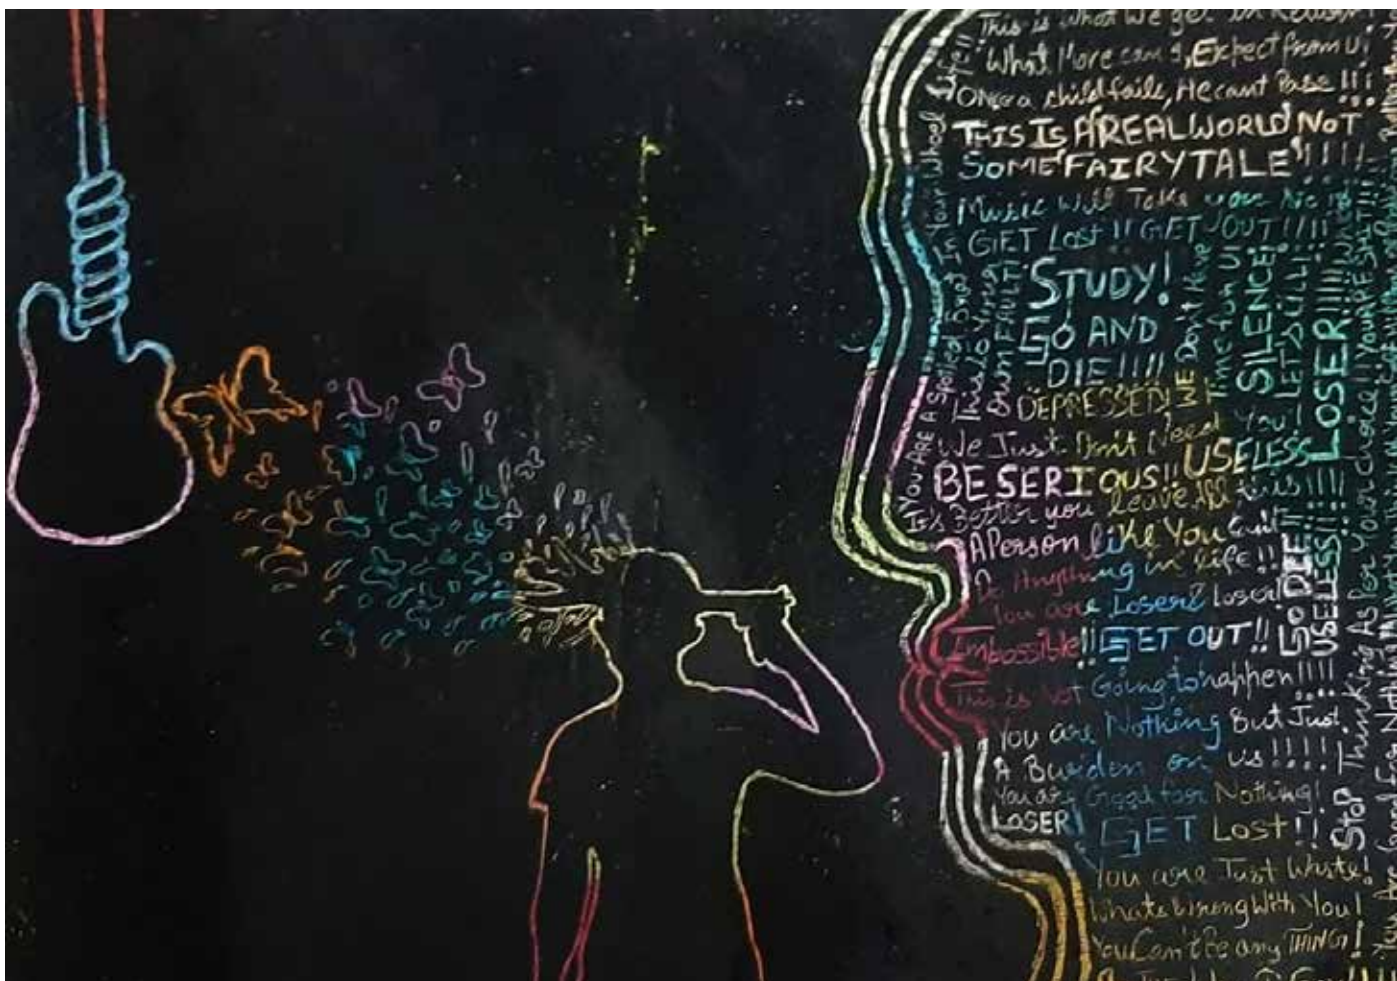 This is what We get in Return!
What More can I, Expect from U!
Once a child fails, He cant Pase !!!
THIS IS A REAL WORLD NOT
SOME FAIRYTALE !!!!
Music Will Take you
GET Lost !! GET OUT !!!!
STUDY!
GO AND
DIE!!!!
DEPRESSED!
We Just Don't Need
BE SERIOUS!!
It's Better you leave All this
A Person like You Can't
Do Anything in life!!
You are Loser! Loser!
Impossible!! GET OUT!!
This is Not Going to happen!!!!
You are Nothing But Just
A Burden on us!!!!
You are Good for Nothing!
LOSER! GET Lost!!
You are Just Waste!
Whats Wrong With You!
You Can't Be any THING!
In Your Whool Life!!
You ARE A Spoiled Brat
This Is Your
FAULT!
WE Don't Have
Time for U!
SILENCE!
You - LET'S
USELESS
LOSER!!!!!
GO DIE!!
USELESS!!!!!!
STOP Thinking As Per Your choice!! YOUR
You Are Good For Nothing